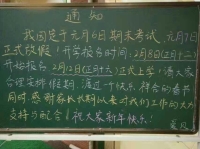 通知
我园定于元月6日期末考试,元月7日
正式放假!开学报告时间:2月8日(正月十二)
开始报告2月12日(正月十六)正式上学!请大家
合理安排假期,过一个快乐、祥合的春节
同时感谢家长长期以来对我们工作的大力
支持与配合!祝大家新年快乐!